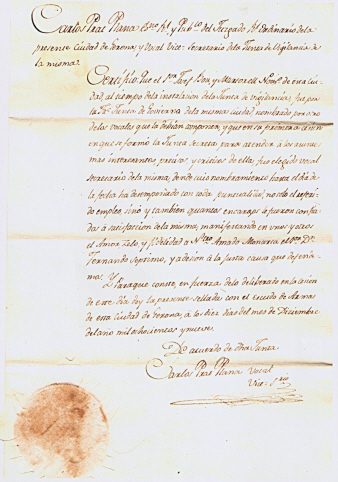 Carlos Pras Plana Essno Rl. y Pubco del Juzgado Rl. Ordinario de la
presente Ciudad de Gerona, y Vocal Vice-Secretario de la Junta de Vigilancia de
la misma.
Certifico: Que el Sor. y Marcarell de esta ciu-
dad, al tiempo de la instalacion de la Junta de Vigilancia, fue por
la Junta de Govierno de la misma ciudad nombrado, por uno
de los vocales que la debian componer, y que en su primera
en que se formó la Junta Secreta para atender a los asunt-
tos interesantes, precisos y de ella, fue elegido vocal
Secretario de la misma, desde cuio nombramiento hasta el dia de
la fecha ha desempeñado con toda puntualidad, no solo el referi-
do empleo, sinó y tambien quantos encargos le fueron confia-
dos à satisfaccion de la misma, manifestando en unos y otros
el Amor, zelo, y fidelidad à Ntro Amado Monarca el Dn.
Fernando Septimo, y adesion à la justa causa que defenda-
mos. Y
Para que conste, en fuerza de lo deliberado en la
de este dia doy la presente sellada con el Escudo de Armas
de esta Ciudad de Gerona, à los diez dias del mes de Diciembre
del ano mil ochocientos y nueve.
De acuerdo de dha Junta
Carlos Pras Plana Vocal
Vice-Srio